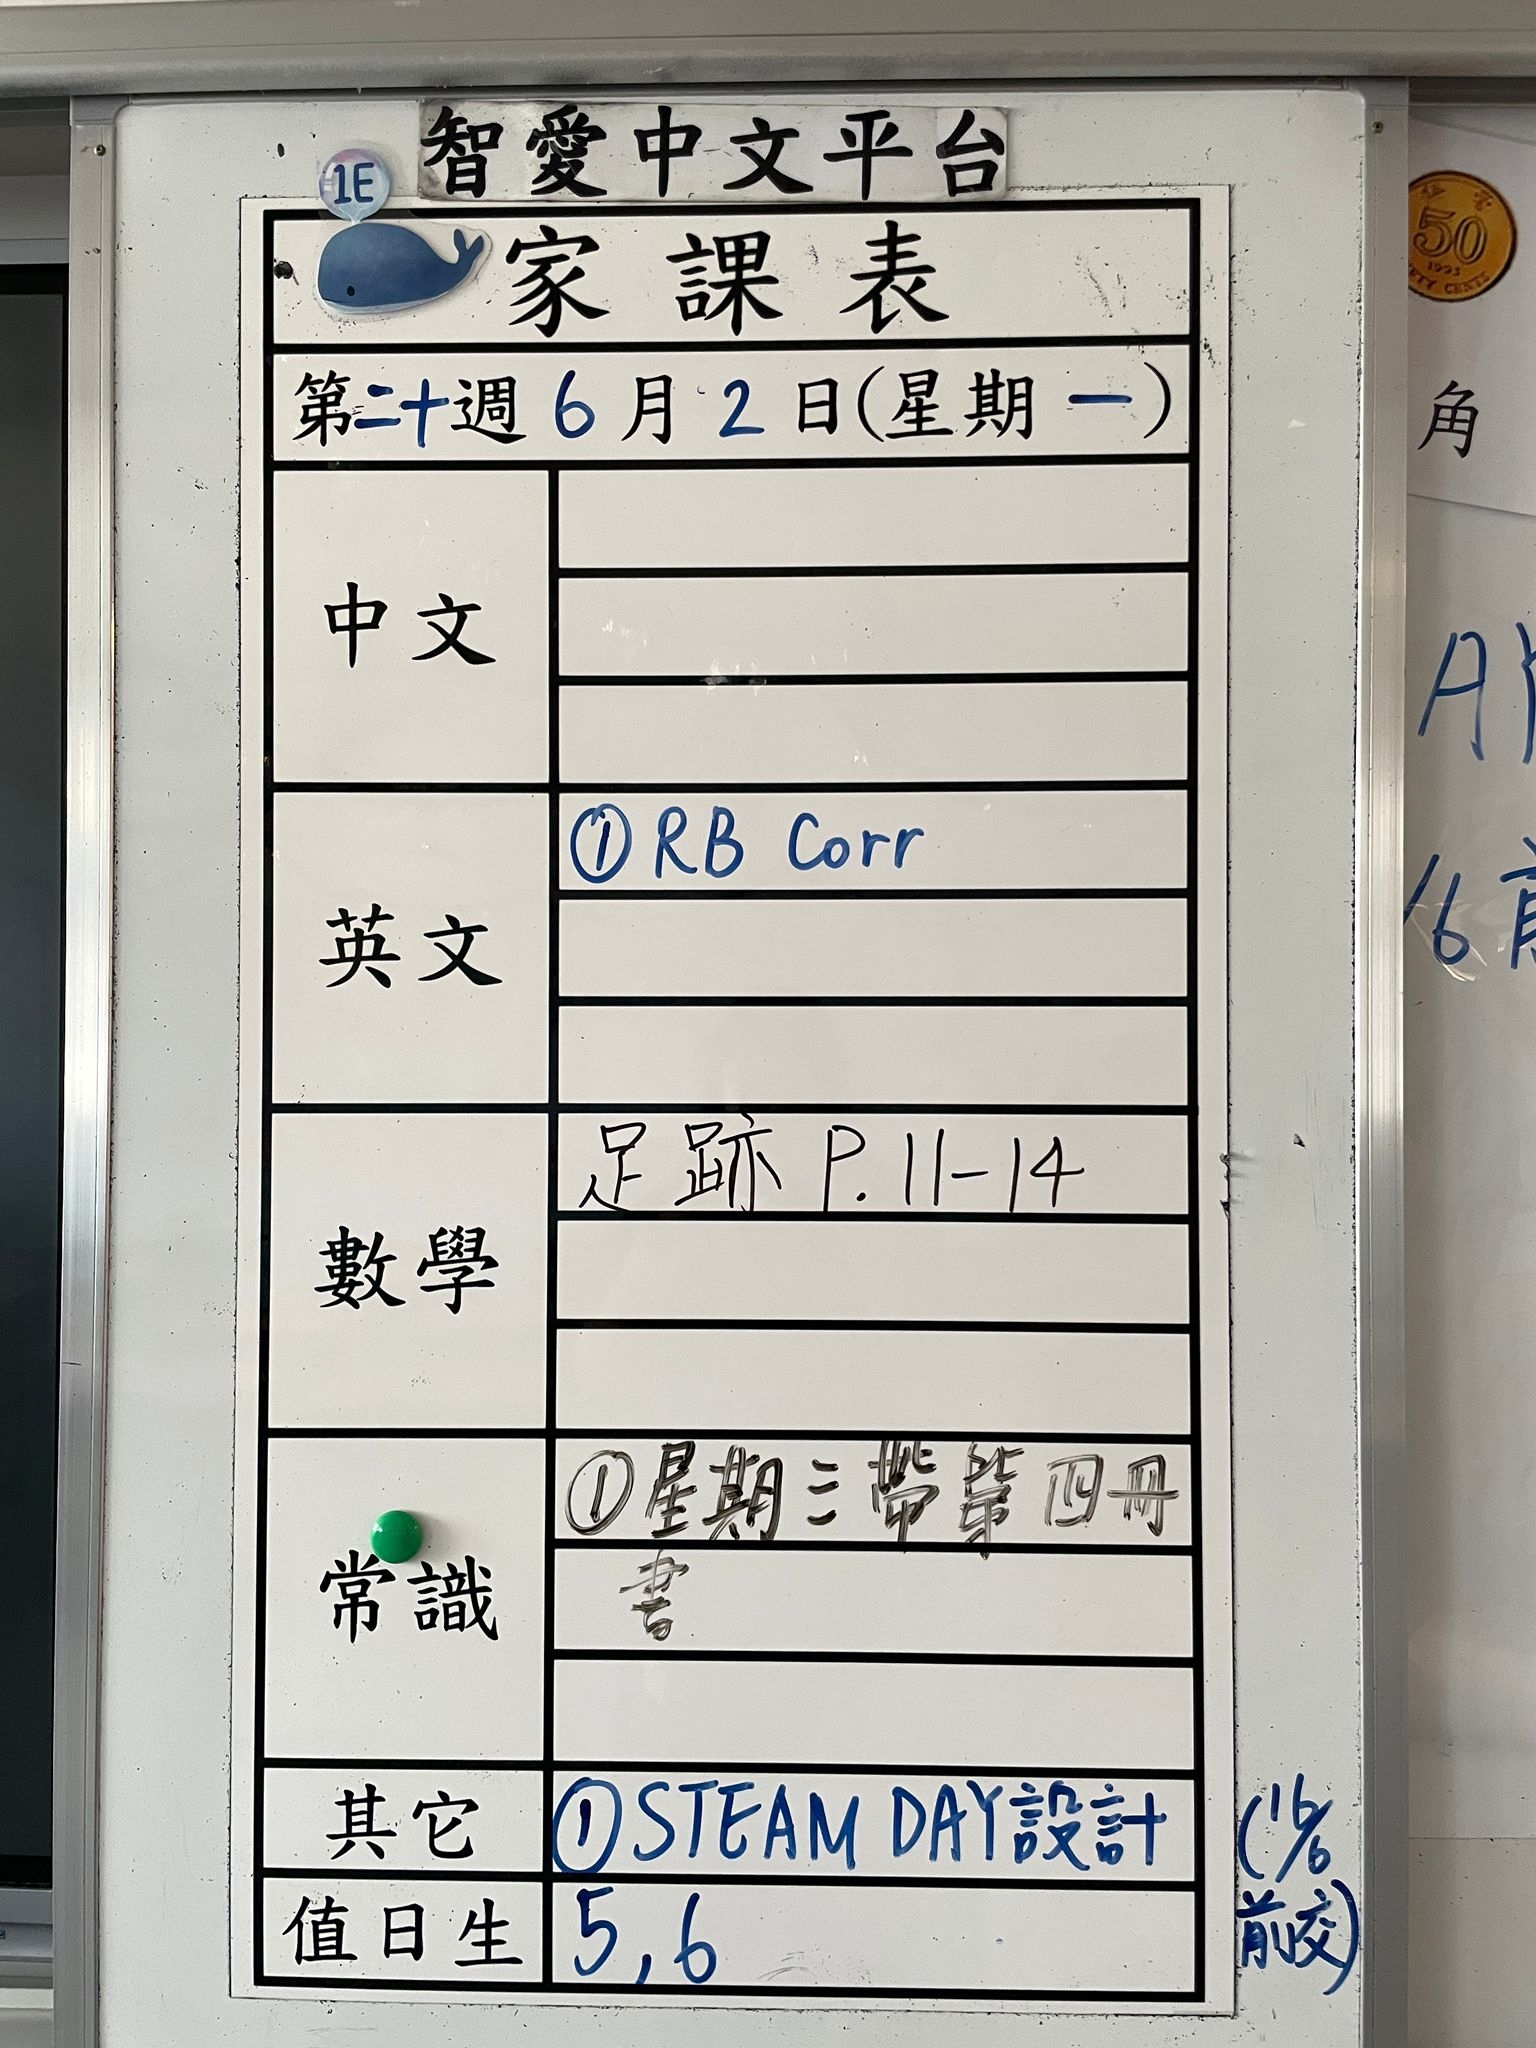 智愛中文平台
1E
家課表
第二十週 6月2日(星期一)
中文
英文
① RB Corr
數學
足跡 P.11-14
常識
①星期三帶第四冊
書
其它
①STEAM DAY設計
(16/6
前交)
值日生
5,6
50
1993
角
/6前